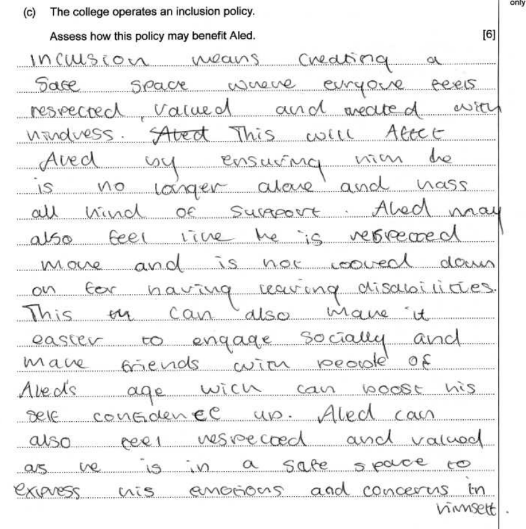 only
(c) The college operates an inclusion policy.
Assess how this policy may benefit Aled.
[6]
inclusion means creating a
safe space where everyone feels
respected, valued and treated with
kindness. Aled This will Affect
Aled by ensuring him he
is no longer alone and hass
all kind of support. Aled may
also feel like he is respected
more and is not looked down
on for having learning disabilities.
This can also make it
easier to engage socially and
make friends with people of
Aled's age wich can boost his
self confidence up. Aled can
also feel respected and valued
as he is in a safe space to
express his emotions and concerns in
himself.